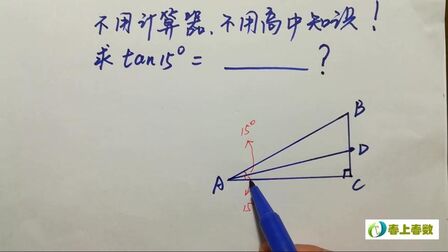 不用计算器、不用高中知识!
求tan15°= ______ ?
15°
B
D
A
C
15
春上春数